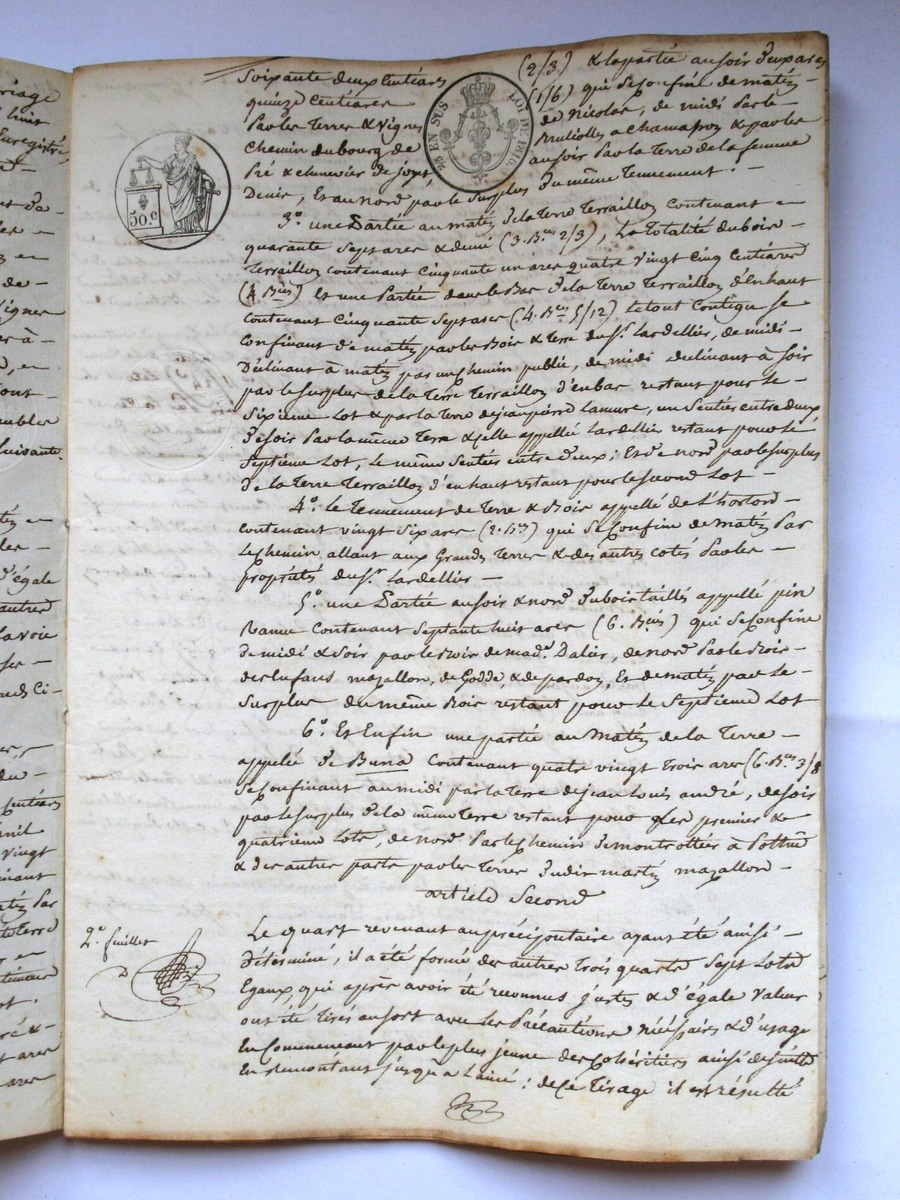 Soixante deux Centiares (2/3) & la partie au soir d'un pares
quinze Centiares (1/6) qui se Confine de matin
par les Terres & Vignes de Nicolas, de midi par le
Chemin du bourg de a Chamasson & par les
Pré & chenevier de Joyet, au soir par la Terre de la femme
Denis, Et au nord par le Surplus du même Tennement. -
50.c
25 EN SUS LOI DE 1816.
3.° une Partie au matin de la Terre Terraillon Contenant -
quarante Sept ares & demi (3. B.es 2/3), La Totalité du bois -
Terraillon Contenant Cinquante un ares quatre Vingt Cinq Centiares
(4 B.ées) Et une Partie dans le Bas de la Terre Terraillon d'Enhaut
Contenant Cinquante Sept ares (4. B.ées 5/12) le tout Contigu se
Confinant de matin par les Bois & Terre du S.r Lardellier, de midi -
Déclinant à matin par un Chemin public, de midi declinant à soir
par le Surplus de la Terre Terraillon d'en bas restant pour le -
Sixième Lot & par la Terre de jean pierre Lamure, un Sentier entre deux
de Soir par la même Terre & celle appellée Lardellier restant pour le
Septième Lot, le même Sentier Entre deux; Et de nord par le Surplus
de la Terre Terraillon d'en haut restant pour le Second Lot -
4.° Le Tennement de Terre & Bois appellé de L'horlon -
Contenant vingt Six ares (2. B.ées) qui Se Confine de matin par
Le Chemin allant aux Grandes Terres & des autres cotés par les -
propriétés du S.r Lardellier -
5.° une Partie au soir & nord du bois taillis appellé pin
Ranne Contenant Septante huit ares (6. B.ées) qui Se Confine
de midi & Soir par le Bois de mad.e Dalier, de nord par le Bois -
des Enfans mazallon, de Godde, & de pardon, Et de matin par le
Surplus du même Bois restant pour le Septième Lot
6.° Et Enfin une partie au Matin de la Terre -
appellée de Buna Contenant quatre vingt Trois ares (6. B.ées 3/8
Se Confinant au midi par la Terre de jean Louis andré, de soir
par le Surplus de la même Terre restant pour Les premier &
quatrième Lots, de nord par le Chemin de montrottier à
& des autres parts par les Terres dudit martin mazallon -
article Second
2.e feuillet
Le quart revenant au préciputaire ayant été ainsi -
Déterminé, il a été formé des autres Trois quarts Sept Lots
Egaux, qui après avoir été reconnus justes & d'égale Valeur
ont été tirés au sort avec les Précautions Nécessaires & d'usage
En Commencant par le plus jeune des Cohéritiers ainsi de suite
En remontant jusqu'à L'ainé; de Ce Tirage il est résulté